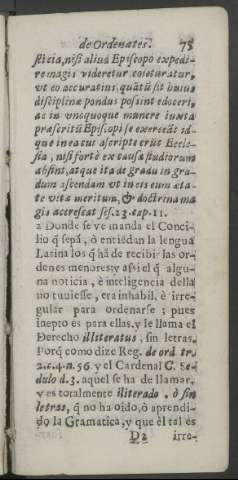 de Ordenates. 75
sticia, nisi aliud Episcopo expedi-
re magis videretur coleturatur,
vt eo accuratius, quātū sit huius
disciplinæ pondus possint edoceri,
ac in vnoquoque munere iuxta
præscritū Episcopi se exerceāt id-
que in ea cui ascripte erūt Eccle-
sia, nisi fortè ex causa studiorum
absint, atque ita de gradu in gra-
dum ascendam vt in eis cum æta-
te vitæ meritum, & doctrina ma-
gis accrescat ses. 23. cap. 11.
2 Donde se ve manda el Conci-
lio q̃ sepã, ò entiēdan la lengua
Latina los q̃ hã de recibir las or-
denes menores; y assi el q̃ algu-
na noticia, è inteligencia della
no tuuiesse, era inhabil, è irre-
gular para ordenarse; pues
inepto es para ellas, y le llama el
Derecho illiteratus, sin letras.
Porq̃ como dize Reg. de ord. tr.
2. c. 4. n. 56. y el Cardenal C. Se-
dulo d. 3. aquel se ha de llamar,
y es totalmente iliterado, ò sin
letras, q̃ no ha oido, ò aprendi-
do la Gramatica, y que èl tal es
D 2 irre-